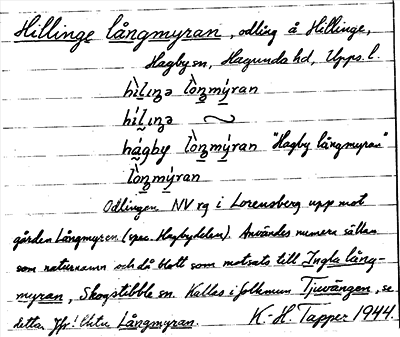 Hillinge långmyran, odling å Hillinge,
Hagby sn, Hagunda hd, Upps. l.
hìlıŋə lòŋmýran
hílıŋə ~
hágby lòŋmýran "Hagby långmyran"
lòŋmýran
Odlingen NV rg i Lorensberg upp mot
gården Långmyren (spec. Hagbydelen). Användes numera sällan
som naturnamn och då blott som motsats till Ingla lång-
myran, Skogstibble sn. Kallas i folkmun Tjuvängen, se
detta. Jfr! Långmyran. K.-H. Tapper 1944.